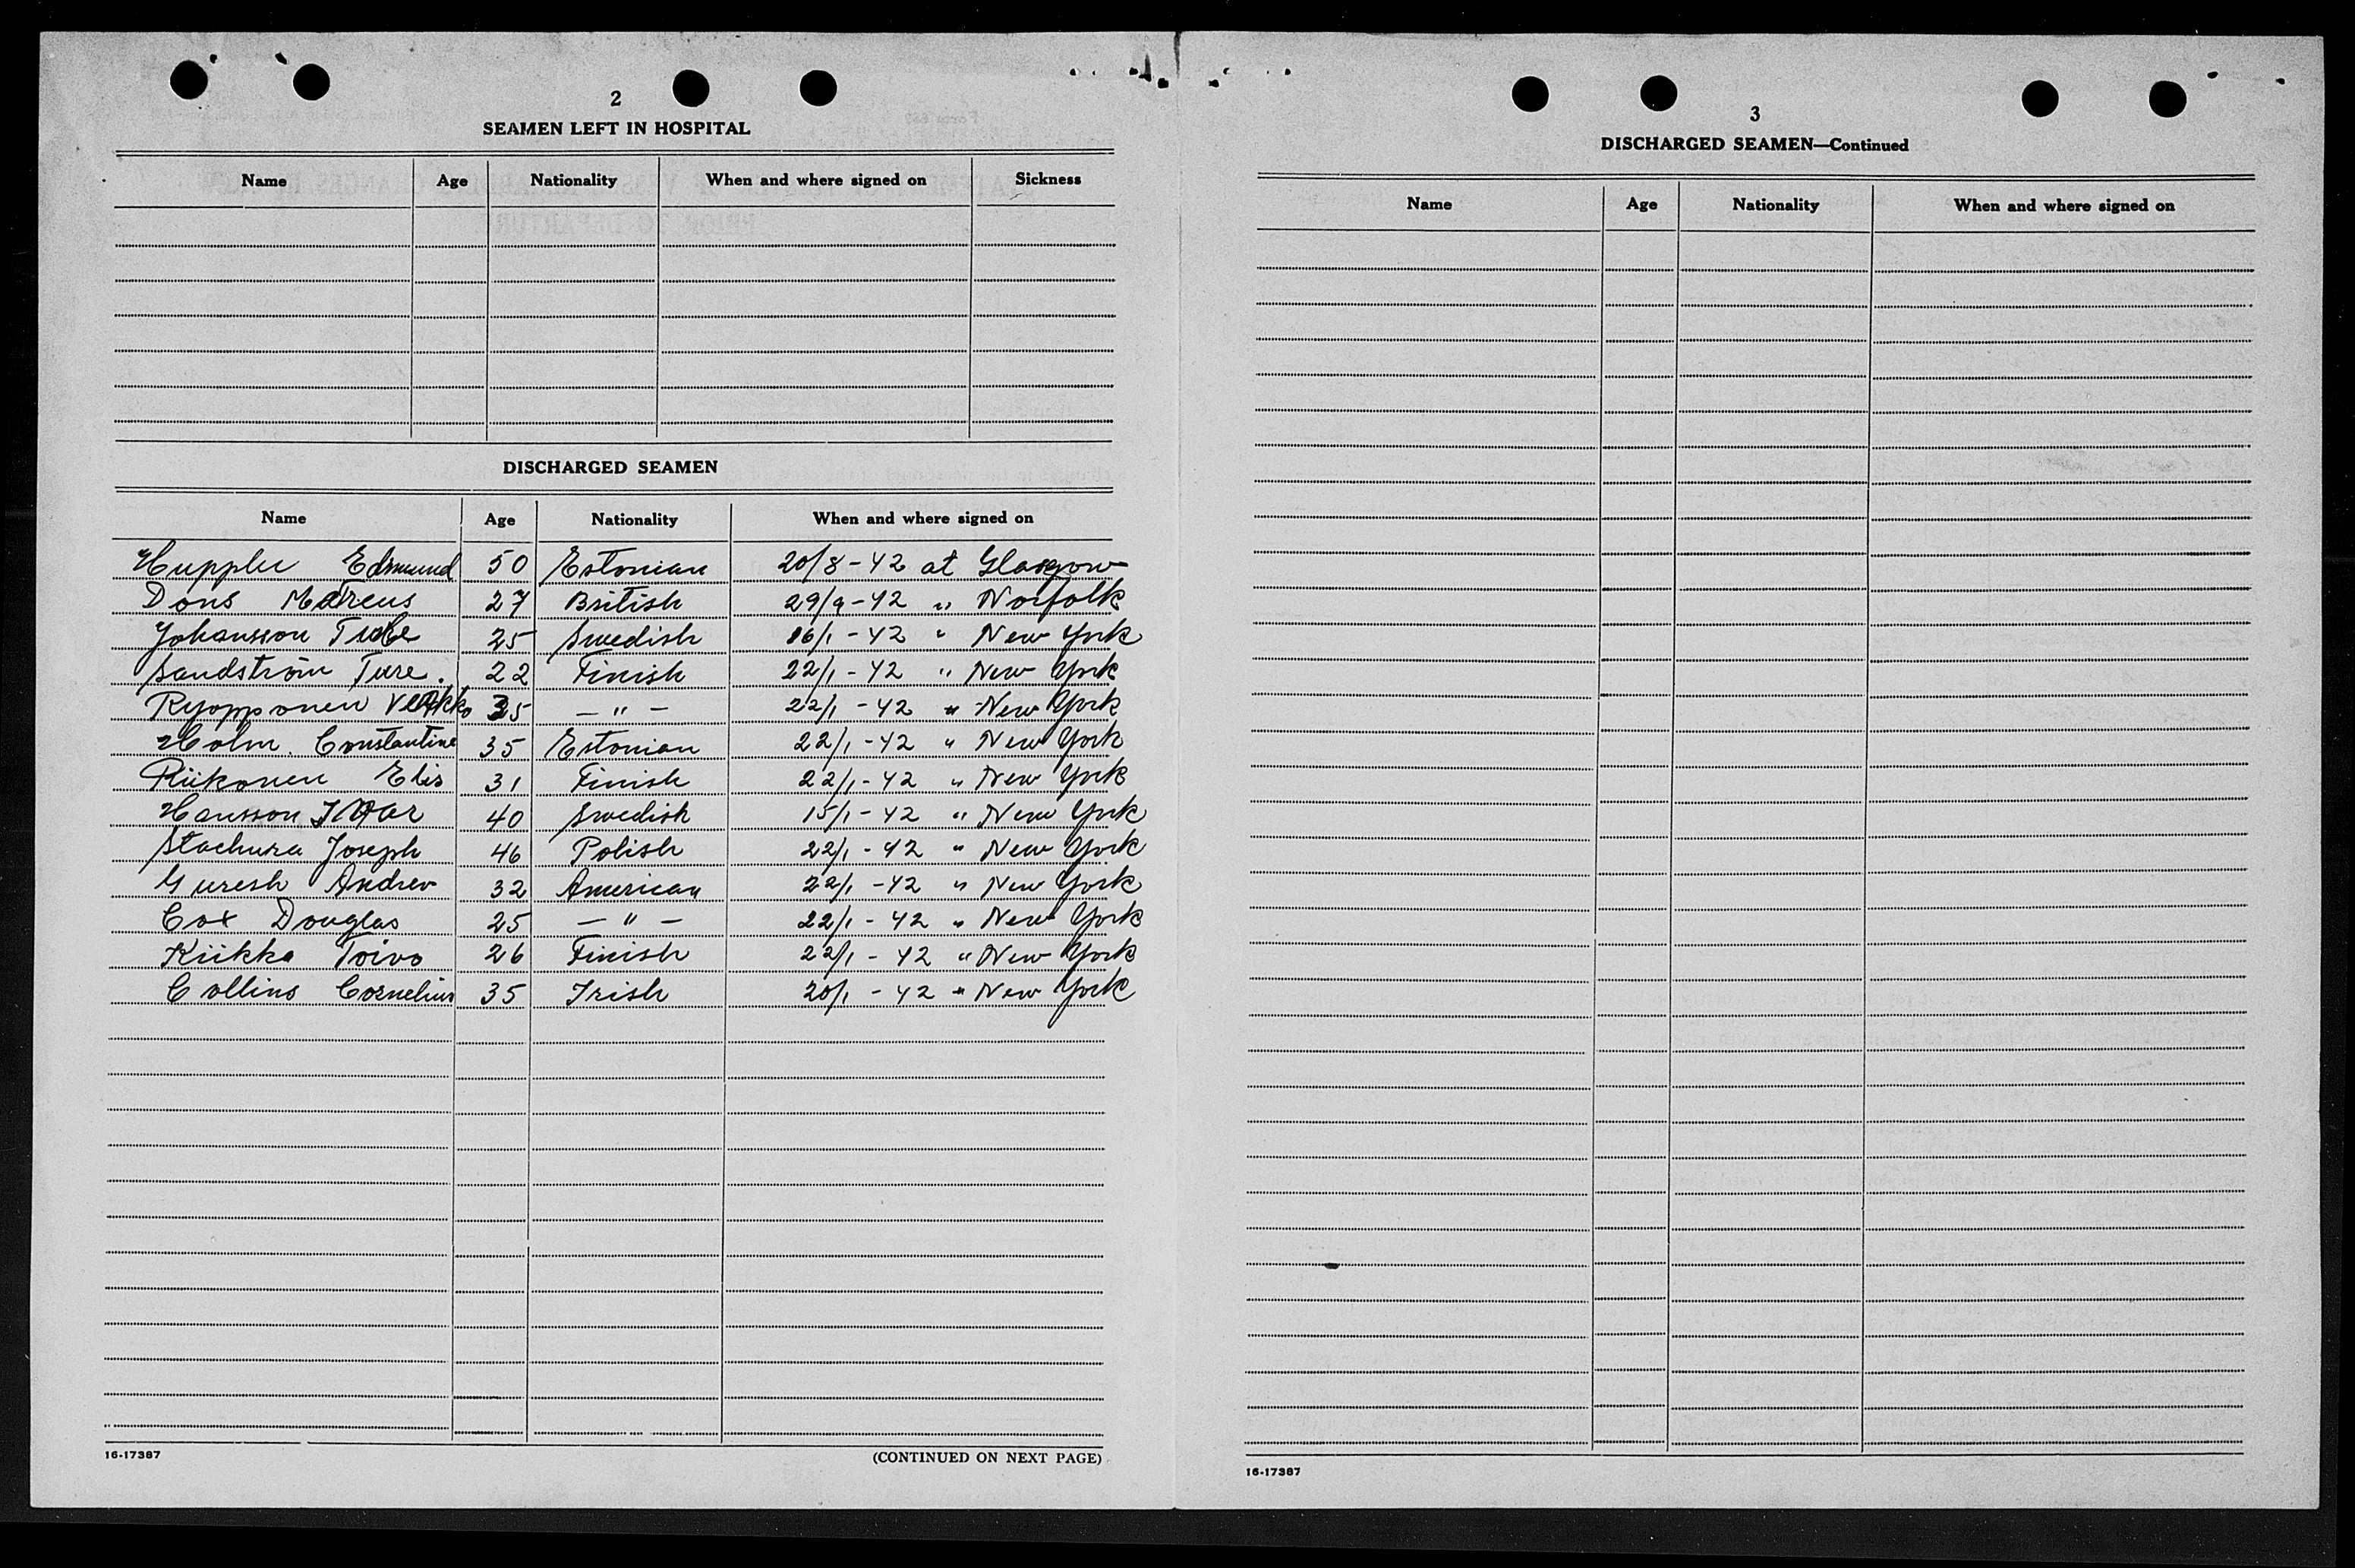 2
SEAMEN LEFT IN HOSPITAL
Name Age Nationality When and where signed on Sickness
DISCHARGED SEAMEN
Name Age Nationality When and where signed on
Edmund 50 Estonian 20/8-42 at Glasgow
Dons Marcus 27 British 29/9-42 " Norfolk
Johansson 25 Swedish 16/1-42 " New York
Sandström Ture. 22 Finish 22/1-42 " New York
Ryopponen Veikko 35 — " — 22/1-42 " New York
Holm. Constantine 35 Estonian 22/1-42 " New York
Riikonen Elis 31 Finish 22/1-42 " New York
Hansson Ivar 40 Swedish 15/1-42 " New York
Stachura Joseph 46 Polish 22/1-42 " New York
Guresh Andrew 32 American 22/1-42 " New York
Cox Douglas 25 — " — 22/1-42 " New York
Kiikka Toivo 26 Finish 22/1-42 " New York
Collins Cornelius 35 Irish 20/1-42 " New York
16-17387 (CONTINUED ON NEXT PAGE)
3
DISCHARGED SEAMEN—Continued
Name Age Nationality When and where signed on
16-17387